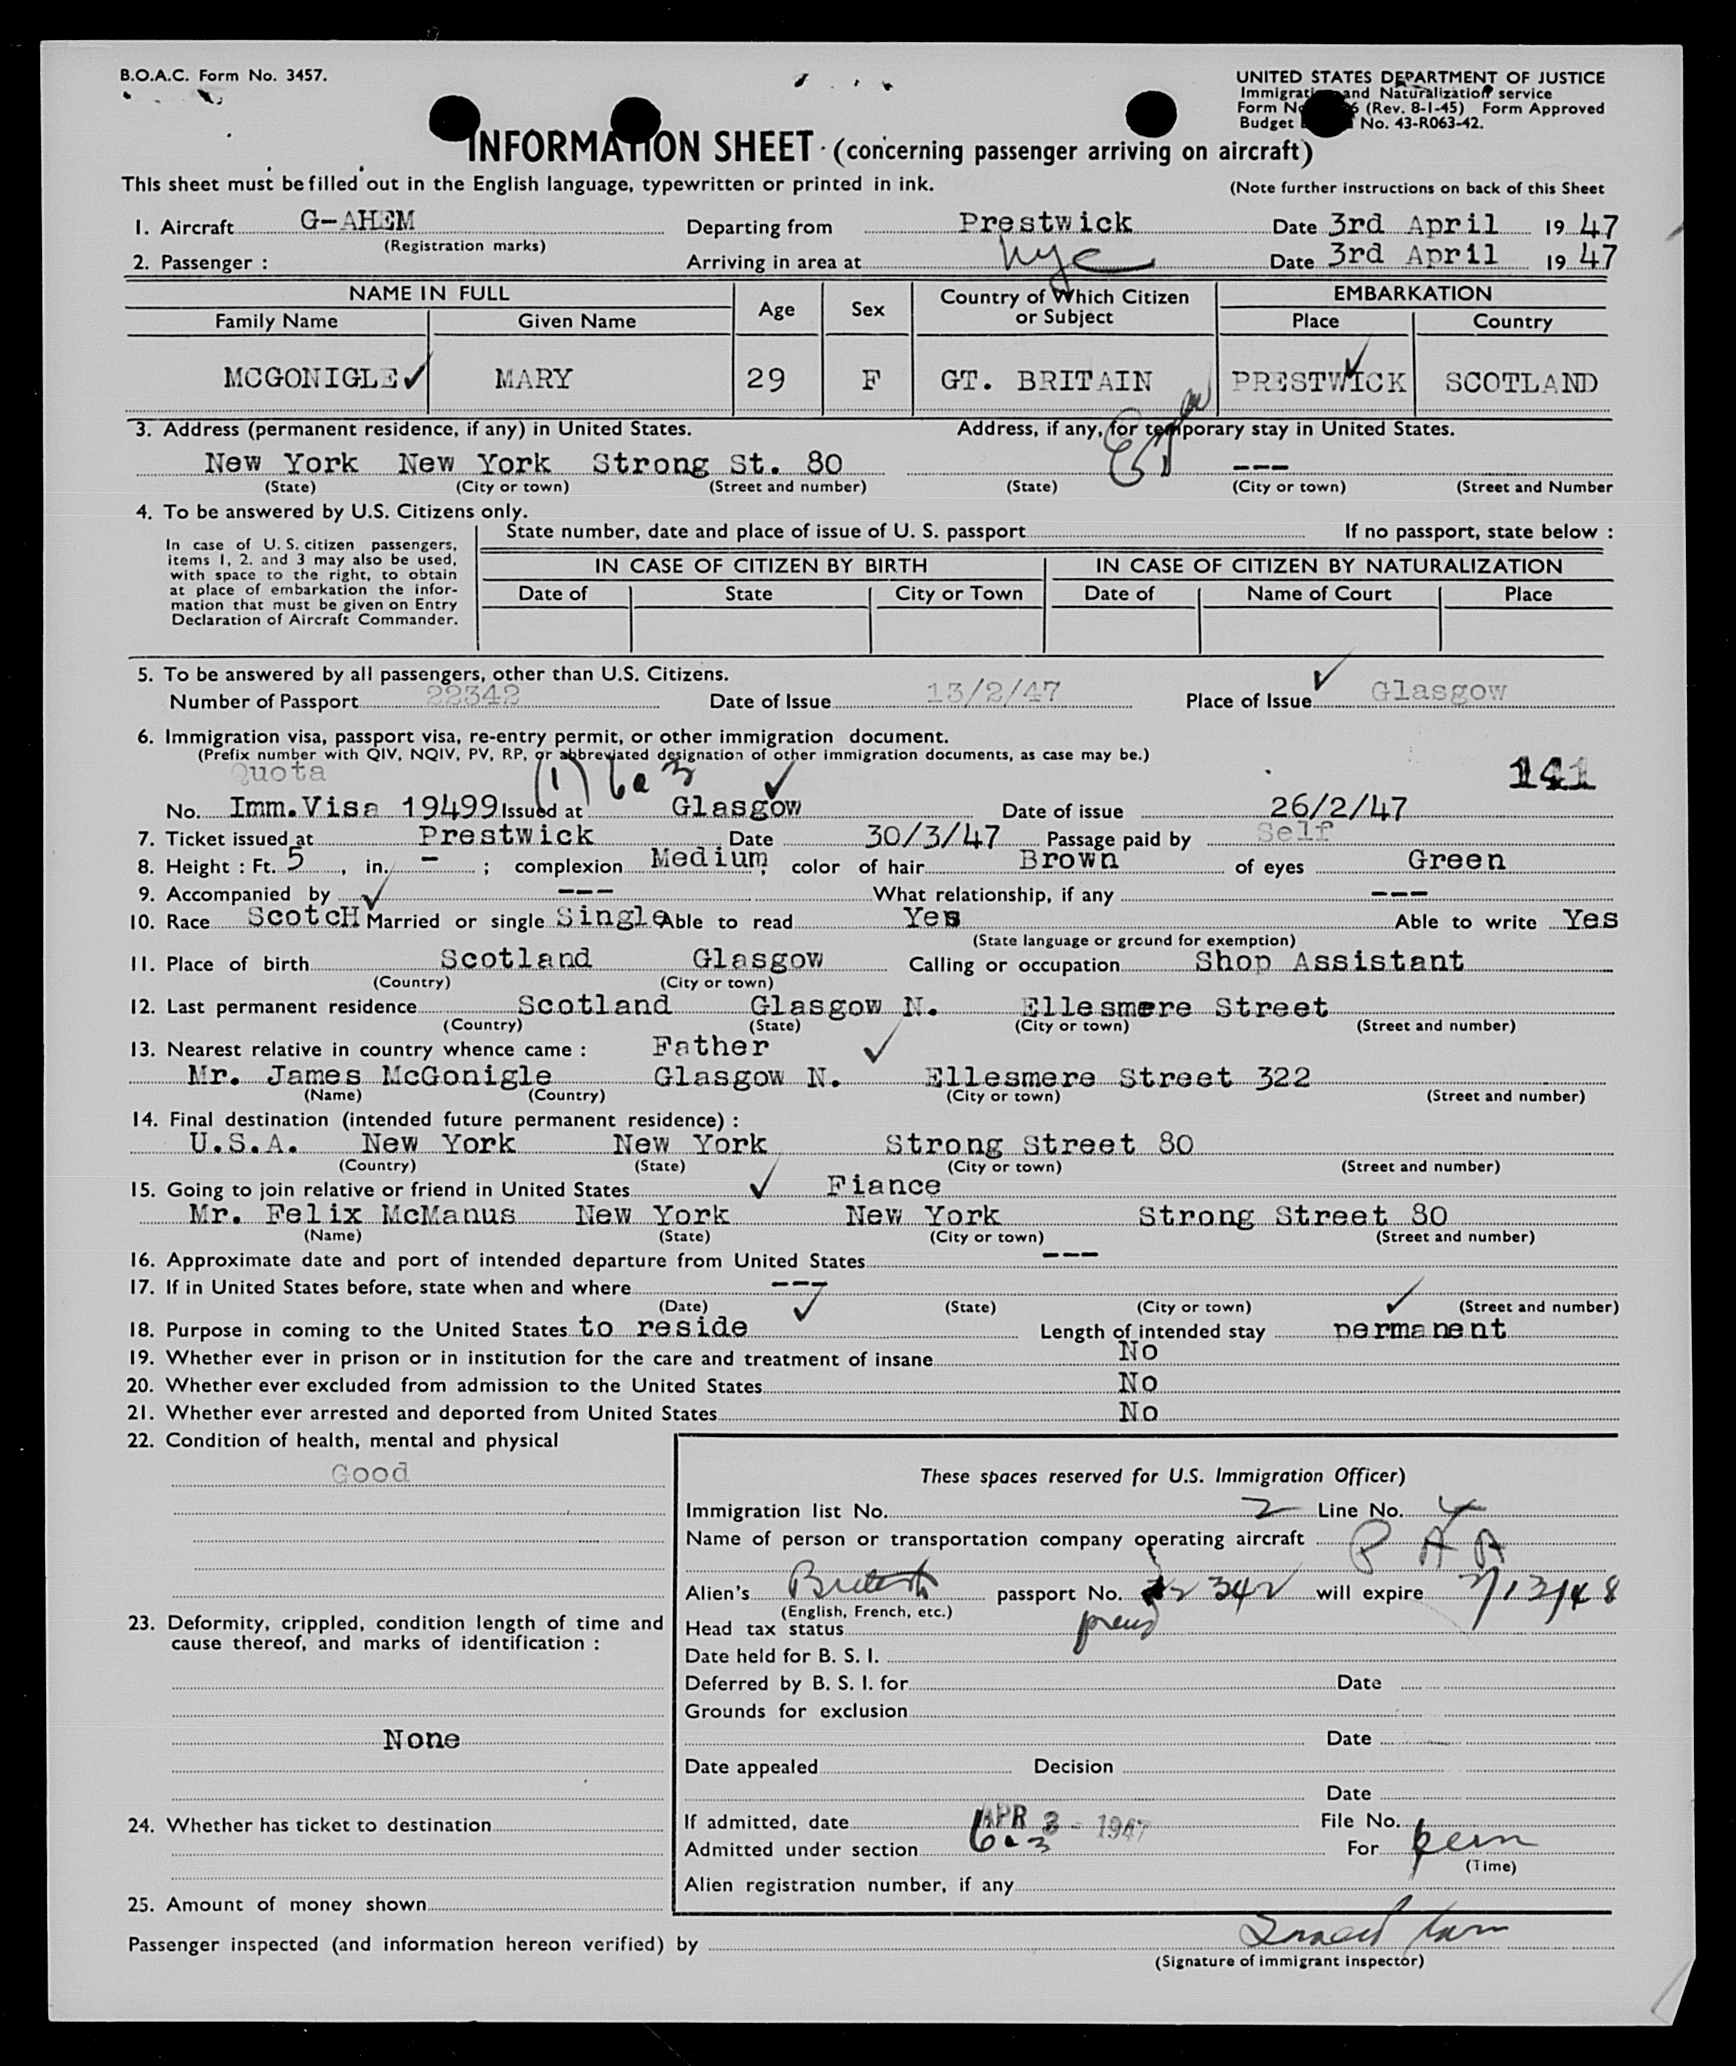 B.O.A.C. Form No. 3457.
UNITED STATES DEPARTMENT OF JUSTICE
Immigration and Naturalization service
Form No. 6 (Rev. 8-1-45) Form Approved
Budget No. 43-R063-42.
INFORMATION SHEET (concerning passenger arriving on aircraft)
This sheet must be filled out in the English language, typewritten or printed in ink.
(Note further instructions on back of this Sheet
1. Aircraft G-AHEM Departing from Prestwick Date 3rd April 1947
(Registration marks)
2. Passenger : Arriving in area at nyc Date 3rd April 1947
NAME IN FULL Age Sex Country of Which Citizen or Subject EMBARKATION
Family Name Given Name Place Country
MCGONIGLE MARY 29 F GT. BRITAIN PRESTWICK SCOTLAND
3. Address (permanent residence, if any) in United States. Address, if any, for temporary stay in United States.
New York New York Strong St. 80 ---
(State) (City or town) (Street and number) (State) (City or town) (Street and Number
4. To be answered by U.S. Citizens only.
State number, date and place of issue of U. S. passport If no passport, state below :
In case of U. S. citizen passengers,
items 1, 2. and 3 may also be used,
with space to the right, to obtain
at place of embarkation the infor-
mation that must be given on Entry
Declaration of Aircraft Commander.
IN CASE OF CITIZEN BY BIRTH IN CASE OF CITIZEN BY NATURALIZATION
Date of State City or Town Date of Name of Court Place
5. To be answered by all passengers, other than U.S. Citizens.
Number of Passport 22342 Date of Issue 13/2/47 Place of Issue Glasgow
6. Immigration visa, passport visa, re-entry permit, or other immigration document.
(Prefix number with QIV, NQIV, PV, RP, or abbreviated designation of other immigration documents, as case may be.)
Quota (1) 6a3 141
No. Imm.Visa 19499 Issued at Glasgow Date of issue 26/2/47
7. Ticket issued at Prestwick Date 30/3/47 Passage paid by Self
8. Height : Ft. 5, in. - ; complexion Medium; color of hair Brown of eyes Green
9. Accompanied by --- What relationship, if any ---
10. Race ScotcH Married or single Single Able to read Yes Able to write Yes
(State language or ground for exemption)
11. Place of birth Scotland Glasgow Calling or occupation Shop Assistant
(Country) (City or town)
12. Last permanent residence Scotland Glasgow N. Ellesmere Street
(Country) (State) (City or town) (Street and number)
13. Nearest relative in country whence came : Father
Mr. James McGonigle Glasgow N. Ellesmere Street 322
(Name) (Country) (City or town) (Street and number)
14. Final destination (intended future permanent residence) :
U.S.A. New York New York Strong Street 80
(Country) (State) (City or town) (Street and number)
15. Going to join relative or friend in United States Fiance
Mr. Felix McManus New York New York Strong Street 80
(Name) (State) (City or town) (Street and number)
16. Approximate date and port of intended departure from United States ---
17. If in United States before, state when and where ---
(Date) (State) (City or town) (Street and number)
18. Purpose in coming to the United States to reside Length of intended stay permanent
19. Whether ever in prison or in institution for the care and treatment of insane No
20. Whether ever excluded from admission to the United States No
21. Whether ever arrested and deported from United States No
22. Condition of health, mental and physical
Good
23. Deformity, crippled, condition length of time and
cause thereof, and marks of identification :
None
24. Whether has ticket to destination
25. Amount of money shown
These spaces reserved for U.S. Immigration Officer)
Immigration list No. 2 Line No. 4
Name of person or transportation company operating aircraft P A A
Alien's British passport No. 22342 will expire 2/13/48
(English, French, etc.)
Head tax status
Date held for B. S. I.
Deferred by B. S. I. for Date
Grounds for exclusion
Date
Date appealed Decision
Date
If admitted, date APR 3 - 1947 File No.
Admitted under section 6a3 For perm
(Time)
Alien registration number, if any
Passenger inspected (and information hereon verified) by
(Signature of immigrant inspector)